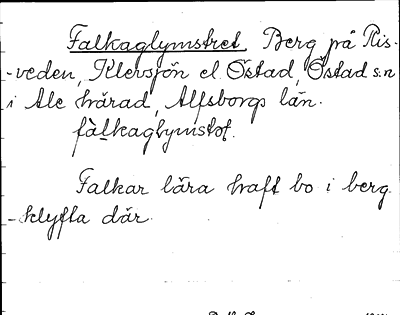 Falkaglymstret, Berg på Ris-
-veden, Klevsjön el. Östad, Östad s:n
i Ale härad, Älfsborgs län.
fàlkaglymstət.
Falkar lära haft bo i berg-
-klyfta där.